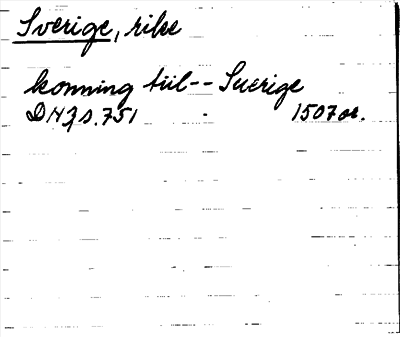 Sverige, rike
konning tiil -- Suerige
DN 3 s. 751 1507 or.